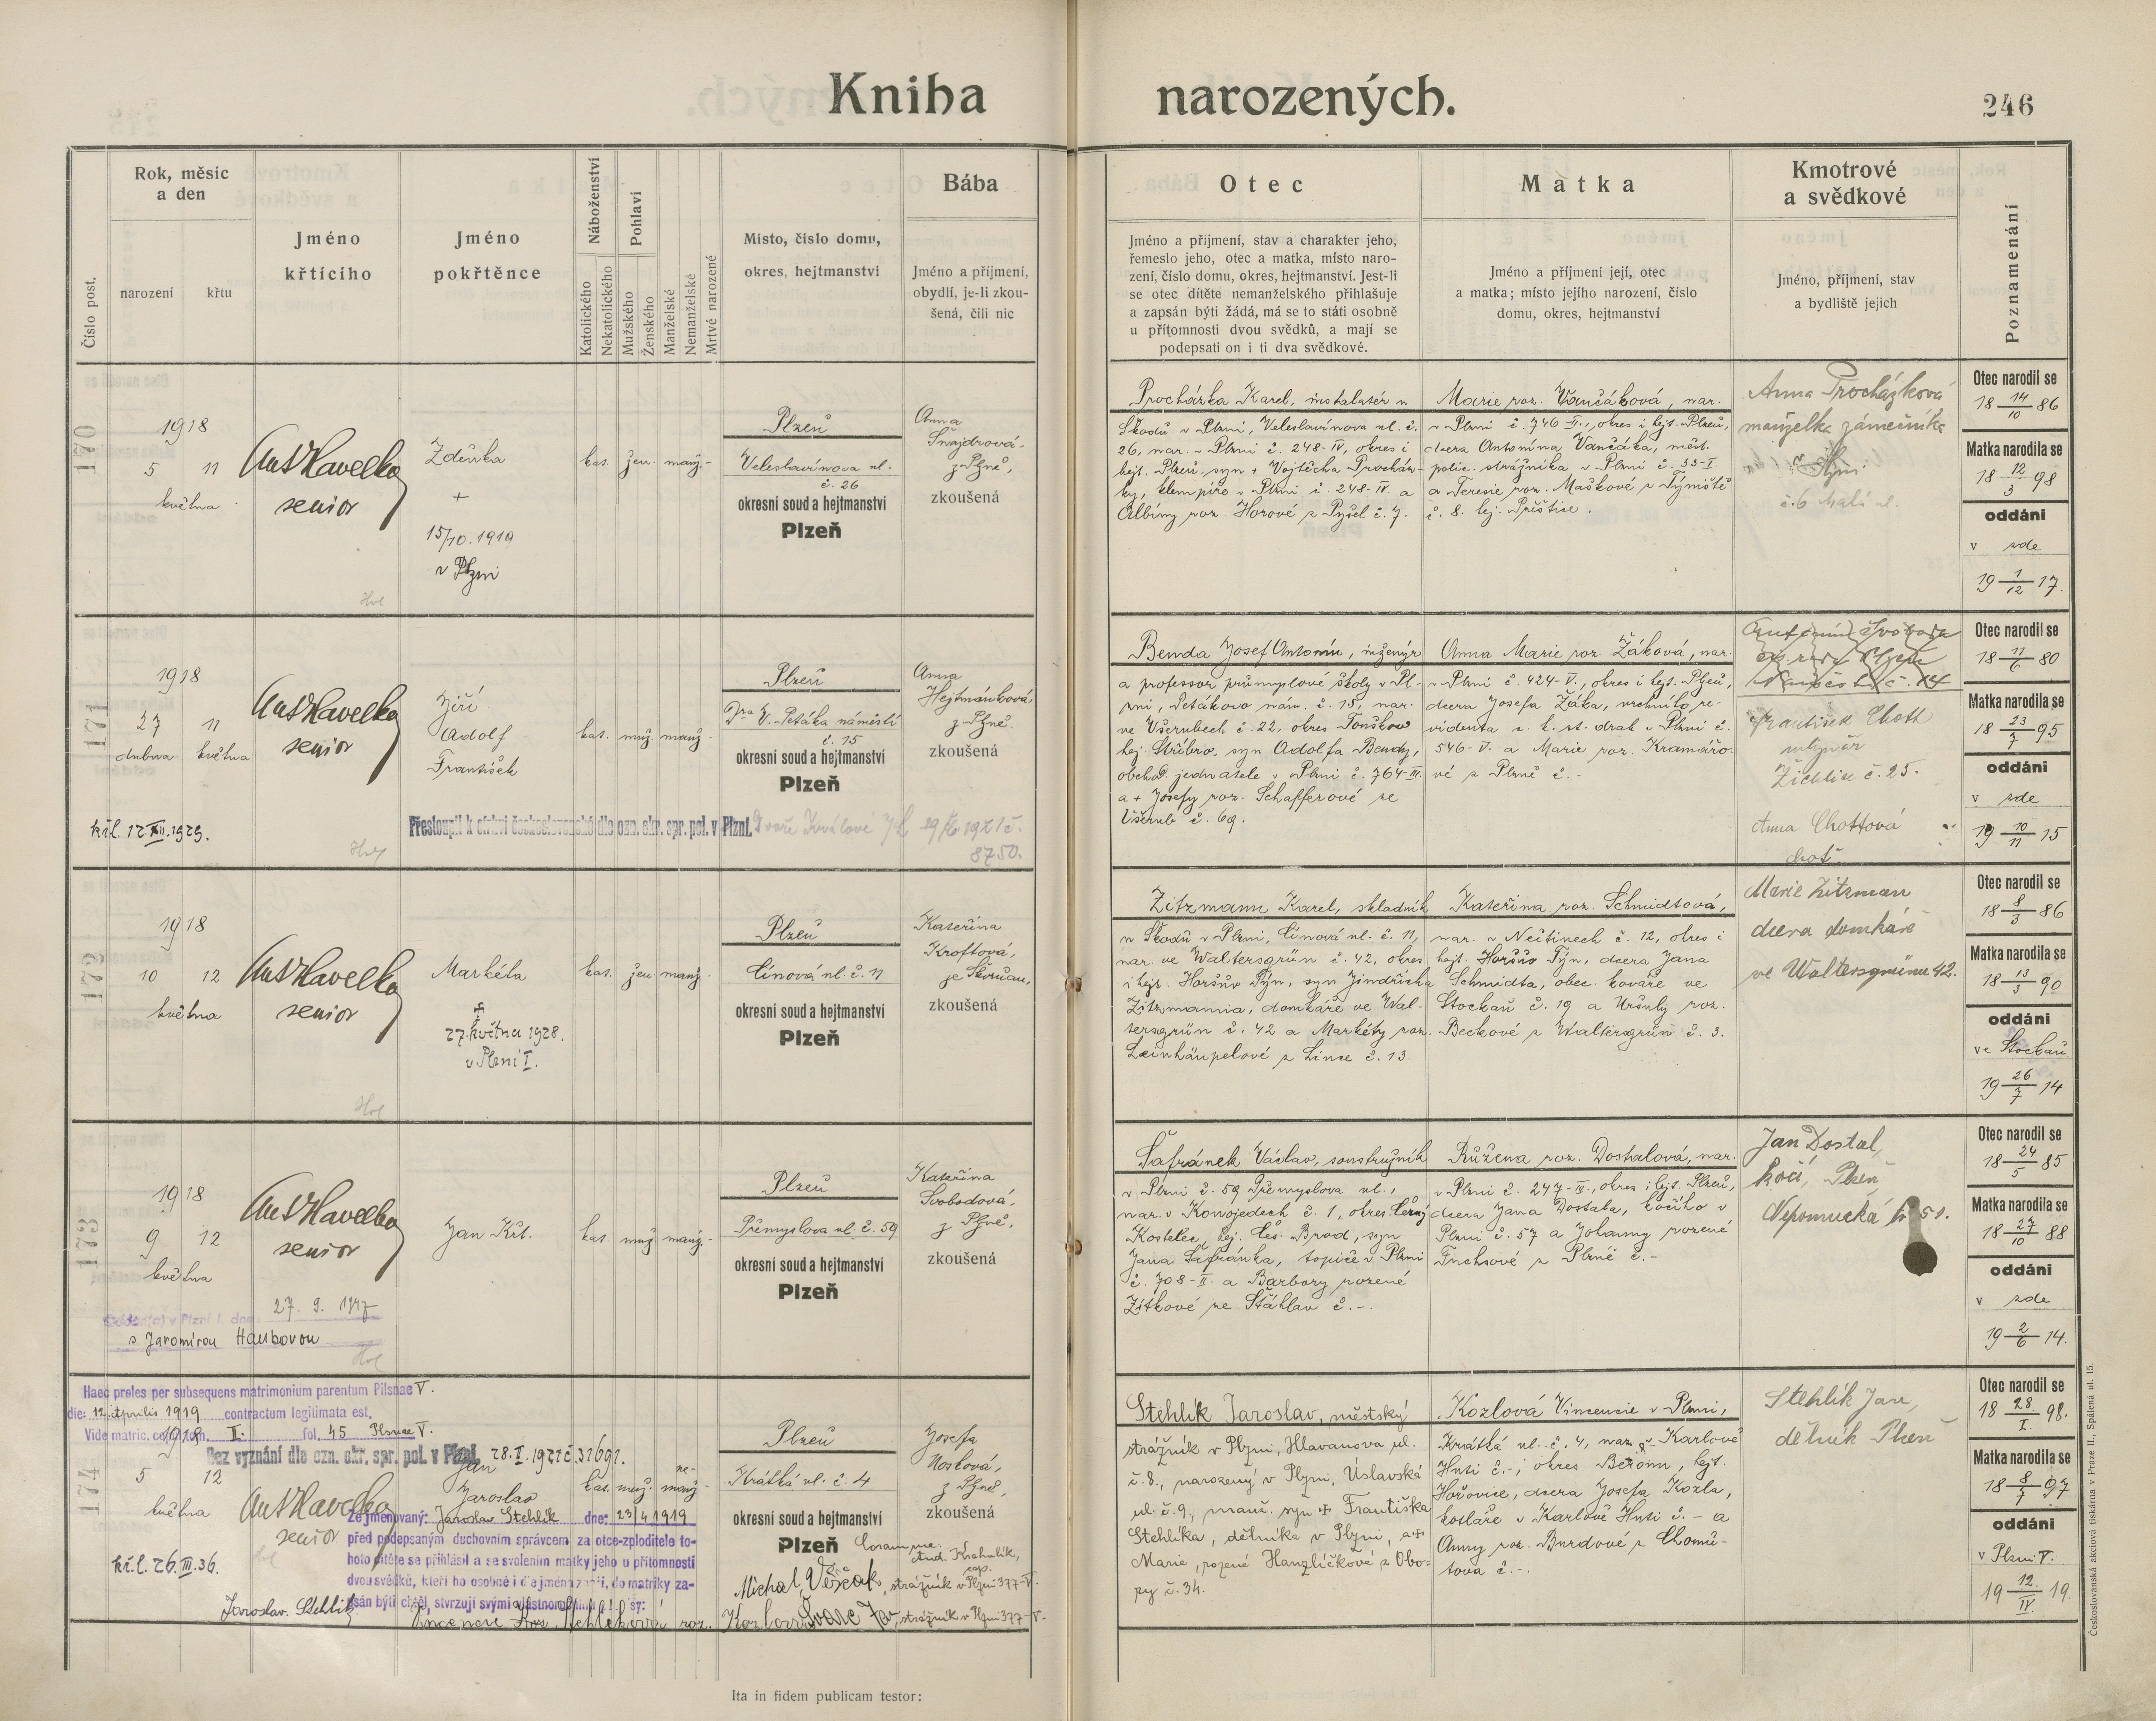 Kniha narozených.
246
Číslo post.
Rok, měsíc
a den
narození
křtu
Jméno
křtícího
Jméno
pokřtěnce
Náboženství
Katolického
Nekatolického
Pohlaví
Mužského
Ženského
Manželské
Nemanželské
Mrtvě narozené
Místo, číslo domu,
okres, hejtmanství
Bába
Jméno a příjmení,
obydlí, je-li zkou-
šená, čili nic
Otec
Jméno a příjmení, stav a charakter jeho,
řemeslo jeho, otec a matka, místo naro-
zení, číslo domu, okres, hejtmanství. Jest-li
se otec dítěte nemanželského přihlašuje
a zapsán býti žádá, má se to státi osobně
u přítomnosti dvou svědků, a mají se
podepsati on i ti dva svědkové.
Matka
Jméno a příjmení její, otec
a matka; místo jejího narození, číslo
domu, okres, hejtmanství
Kmotrové
a svědkové
Jméno, příjmení, stav
a bydliště jejich
Poznamenání
170
1918
5 11
května
Ant Havelka
senior
Zdeňka
+
15/10. 1919
v Plzni
kat. žen. manž.
Plzeň
Veleslavínova ul.
č. 26
okresní soud a hejtmanství
Plzeň
Anna
Šnajdrová
z Plzně,
zkoušená
Procházka Karel, instalatér u
Škodů v Plzni, Veleslavínova ul. č.
26, nar. v Plzni č. 248-IV, okres i
hejt. Plzeň, syn + Vojtěcha Procház-
ky, klempíře v Plzni č. 248-IV. a
Albíny roz. Horové z Pyšel č. 7.
Marie roz. Vančáková, nar.
v Plzni č. 746 II., okres i hejt. Plzeň,
dcera Antonína Vančáka, měst.
polic. strážníka v Plzni č. 33-I.
a Terezie roz. Maškové z Týniště
č. 8. hej. Přeštice.
Anna Procházková
manželka zámečníka
v Plzni
č. 6 Malá ul.
Otec narodil se
18 14/10 86
Matka narodila se
18 12/3 98
oddáni
v zde
19 1/12 17.
171
1918
27 11
dubna května
Ant Havelka
senior
Jiří
Adolf
František
kat. muž. manž.
Plzeň
Dra V. Petáka náměstí
č. 15
okresní soud a hejtmanství
Plzeň
Anna
Hejtmánková
z Plzně,
zkoušená
kř.l. 12.XII.1929.
Přestoupil k církvi československé dle ozn. okr. spr. pol. v Plzni.
8750.
Benda Josef Antonín, inženýr
a professor průmyslové školy v Pl-
zni, Petákovo nám. č. 15, nar.
ve Všerubech č. 22, okres Touškov
hej. Stříbro, syn Adolfa Bendy,
obchod. jednatele v Plzni č. 764-III.
a + Josefy roz. Schafferové ze
Všerub č. 69.
Anna Marie roz. Žáková, nar.
v Plzni č. 424-V., okres i hejt. Plzeň,
dcera Josefa Žáka, vrchního re-
videnta c. k. st. drah v Plzni č.
546-V. a Marie roz. Kramářo-
vé z Plzně č. -
František Chott
mlynář
Žichlice č. 25.
Anna Chottová
choť
Otec narodil se
18 11/6 80
Matka narodila se
18 23/7 95
oddáni
v zde
19 10/11 15
172
1918
10 12
května
Ant Havelka
senior
Markéta
+
27. května 1928.
v Plzni I.
kat. žen. manž.
Plzeň
Cínová ul. č. 11
okresní soud a hejtmanství
Plzeň
Kateřina
Kroftová,
ze Skvrňan,
zkoušená
Zitzmann Karel, skladník
u Škodů v Plzni, Cínová ul. č. 11,
nar. ve Waltersgrün č. 42, okres
i hejt. Horšův Týn, syn Jindřicha
Zitzmanna, domkáře ve Wal-
tersgrün č. 42 a Markéty roz.
Leinhäupelové z Linse č. 13.
Kateřina roz. Schmidtová,
nar. v Nečtinech č. 12, okres i
hejt. Horšův Týn, dcera Jana
Schmidta, obec. kováře ve
Stockau č. 19 a Uršuly roz.
Beckové z Waltersgrün č. 3.
Marie Zitzman
dcera domkáře
ve Waltersgrünu 42.
Otec narodil se
18 8/3 86
Matka narodila se
18 13/3 90
oddáni
ve Stockau
19 26/7 14
173
1918
9 12
května
Ant Havelka
senior
Jan Křt.
kat. muž. manž.
Plzeň
Přemyslova ul. č. 59
okresní soud a hejtmanství
Plzeň
Kateřina
Svobodová,
z Plzně,
zkoušená
Oddán(a) v Plzni I. dne 27. 9. 1947
s Jaromírou Haubovou
Šafránek Václav, soustružník
v Plzni č. 59 Přemyslova ul.,
nar. v Konojedech č. 1, okres Černý
Kostelec, hej. Čes. Brod, syn
Jana Šafránka, topiče v Plzni
č. 708-II. a Barbory rozené
Žitkové ze Šťáhlav č. -.
Růžena roz. Dostalová, nar.
v Plzni č. 247-III., okres i hejt. Plzeň,
dcera Jana Dostala, kočího v
Plzni č. 57 a Johanny rozené
Fuchsové z Plzně č. -
Jan Dostal,
kočí, Plzeň
Nepomucká tř. 51.
Otec narodil se
18 24/5 85
Matka narodila se
18 27/10 88
oddáni
v zde
19 2/6 14.
Haec proles per subsequens matrimonium parentum Pilsnae V.
die: 12. Aprilis 1919 contractum legitimata est.
Vide matric. copul. tom. I. fol. 45 Plsnae V.
Bez vyznání dle ozn. okr. spr. pol. v Plzni 28.I.1921 č. 31691.
174
1918
5 12
května
Ant Havelka
senior
Jan
Jaroslav
kat. muž. ne-
manž.
Plzeň
Krátká ul. č. 4
okresní soud a hejtmanství
Plzeň
Josefa
Nosková,
z Plzně,
zkoušená
kř.l. 26.III.36.
Že jmenovaný: Jaroslav Stehlík dne: 23/4 1919
před podepsaným duchovním správcem za otce-zploditele to-
hoto dítěte se přihlásil a se svolením matky jeho u přítomnosti
dvou svědků, kteří ho osobně i dle jména znají, do matriky za-
psán býti chtěl, stvrzují svými vlastnoručními podpisy:
Coram me:
Michal Věšeak, strážník v Plzni 377-V.
Jaroslav Stehlík
Vincencie Stehlíková roz. Kozlová
Švarc Jan, strážník v Plzni 377-V.
Stehlík Jaroslav, městský
strážník v Plzni, Hlavanova ul.
č. 8., narozený v Plzni, Úslavská
ul. č. 9., manž. syn + Františka
Stehlíka, dělníka v Plzni, a +
Marie, rozené Hanzlíčkové z Obo-
ry č. 34.
Kozlová Vincencie v Plzni,
Krátká ul. č. 4, nar. v Karlově
Huti č. -, okres Beroun, hejt.
Hořovice, dcera Josefa Kozla,
kotláře v Karlově Huti č. - a
Anny roz. Burdové z Chomů-
tova č. -.
Stehlík Jan,
dělník Plzeň
Otec narodil se
18 28/I. 98.
Matka narodila se
18 8/7 97
oddáni
v Plzni V.
19 12/IV. 19.
Ita in fidem publicam testor:
Československá akciová tiskárna v Praze II., Spálená ul. 15.